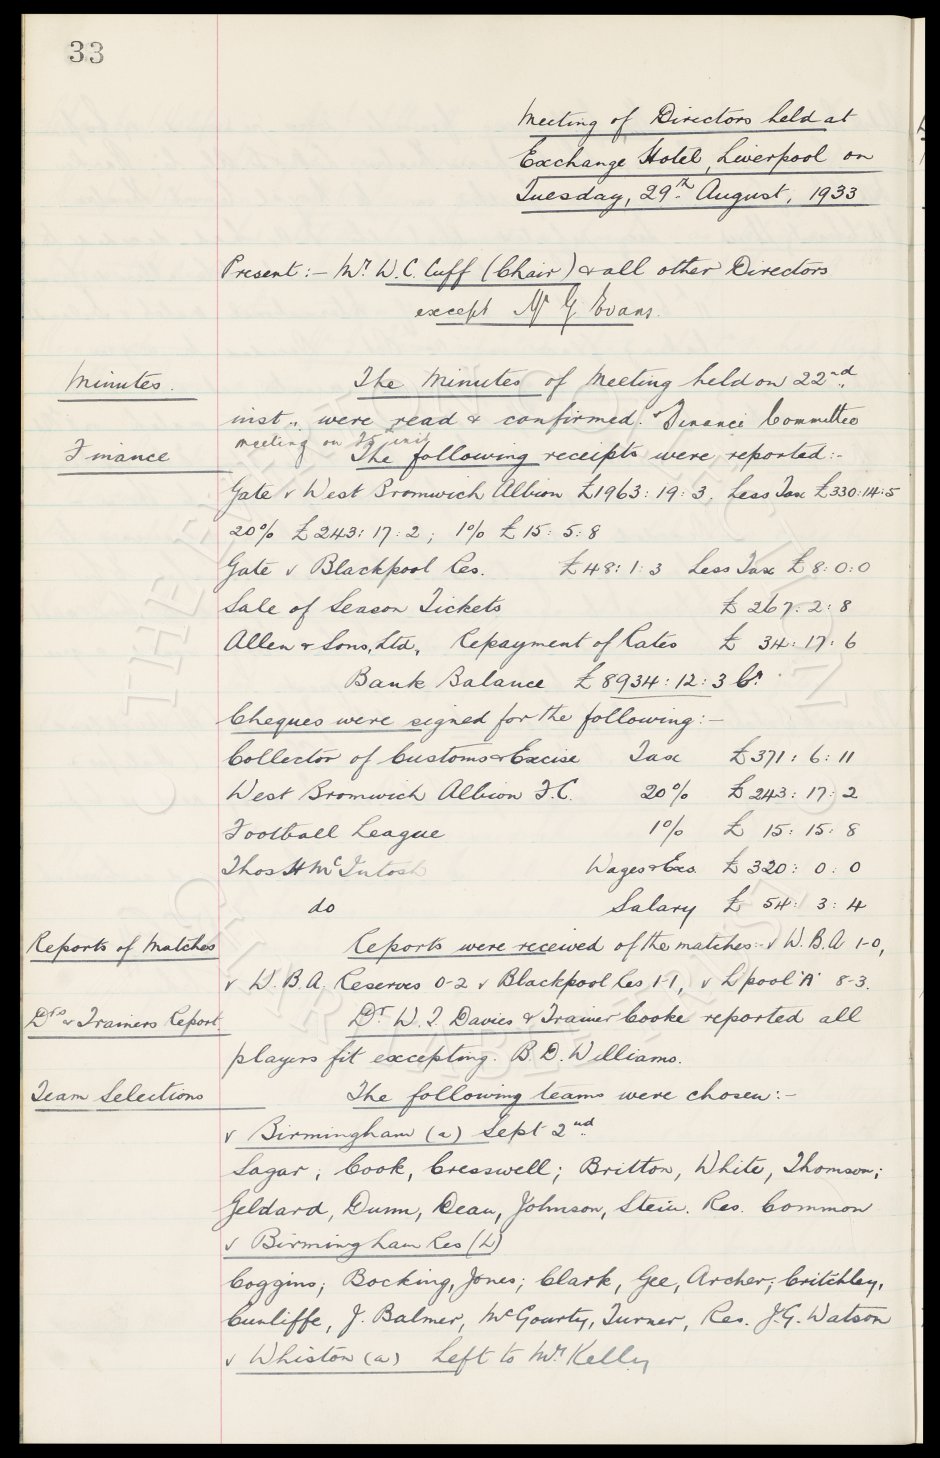 33
Meeting of Directors held at
Exchange Hotel, Liverpool on
Tuesday, 29th August, 1933
Present:- Mr. W.C. Cuff (Chair) & all other Directors
except Mr G Evans.
Minutes. The Minutes of Meeting held on 22nd
inst., were read & confirmed. & Finance Committee
meeting on inst
Finance The following receipts were reported:-
Gate v West Bromwich Albion £1963:19:3. Less Tax £330:14:5
20% £243:17:2; 1% £15:5:8
Gate v Blackpool Res. £48:1:3 Less Tax £8:0:0
Sale of Season Tickets £267:2:8
Allen & Sons, Ltd, Repayment of Rates £34:17:6
Bank Balance £8934:12:3 Cr.
Cheques were signed for the following:-
Collector of Customs & Excise Tax £371:6:11
West Bromwich Albion F.C. 20% £243:17:2
Football League 1% £15:15:8
Thos H McIntosh Wages & Exs £320:0:0
do Salary £54:3:4
Reports of Matches Reports were received of the matches:- v W.B.A 1-0,
v W.B.A. Reserves 0-2 v Blackpool Res 1-1, v L'pool 'A' 8-3.
Drs & Trainers Report Dr W.J. Davies & Trainer Cooke reported all
players fit excepting. B.D. Williams.
Team Selections The following teams were chosen:-
v Birmingham (a) Sept 2nd
Sagar; Cook, Cresswell; Britton, White, Thomson;
Geldard, Dunn, Dean, Johnson, Stein. Res. Common
v Birmingham Res (H)
Coggins; Bocking, Jones; Clark, Gee, Archer; Critchley,
Cunliffe, J. Balmer, McGourty, Turner, Res. J.G. Watson
v Whiston (a) Left to Mr Kelly
THE EVERTON COLLECTION